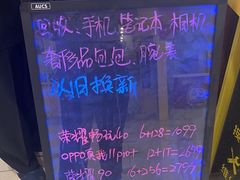 AUCS
回收、手机笔记本、相机
奢侈品包包、腕表
以旧换新
荣耀畅玩40 6+128=1099
OPPO真我11pro+ 12+1T=2699
荣耀90 16+256=2799